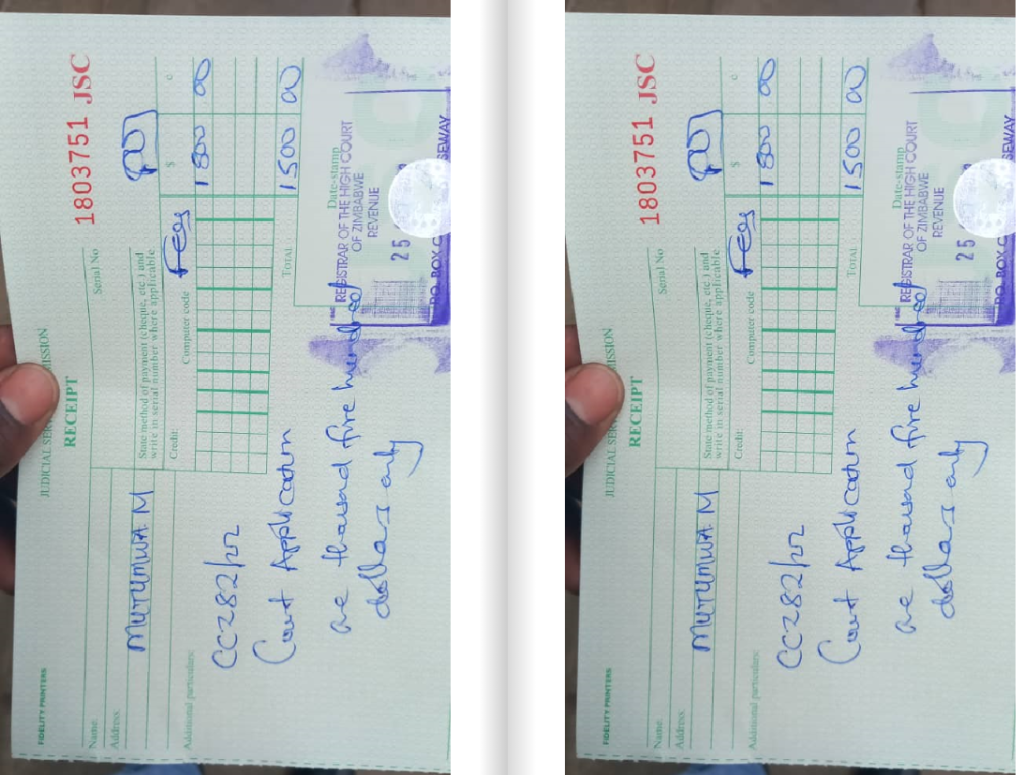 FIDELITY PRINTERS
JUDICIAL SER MISSION
RECEIPT
Serial No 1803751 JSC
Name
Address
MUTUMWA M
State method of payment (cheque, etc.) and
write in serial number where applicable
POS
Additional particulars:
Credit
Computer code
Fees
$ c
1800 00
CC282/22
Court Application
TOTAL
1500 00
one thousand five hundred
dollars only
Date-stamp
REGISTRAR OF THE HIGH COURT
OF ZIMBABWE
REVENUE
25
P.O. BOX C SEWAY
FIDELITY PRINTERS
JUDICIAL SER MISSION
RECEIPT
Serial No 1803751 JSC
Name
Address
MUTUMWA M
State method of payment (cheque, etc.) and
write in serial number where applicable
POS
Additional particulars:
Credit
Computer code
Fees
$ c
1800 00
CC282/22
Court Application
TOTAL
1500 00
one thousand five hundred
dollars only
Date-stamp
REGISTRAR OF THE HIGH COURT
OF ZIMBABWE
REVENUE
25
P.O. BOX C SEWAY